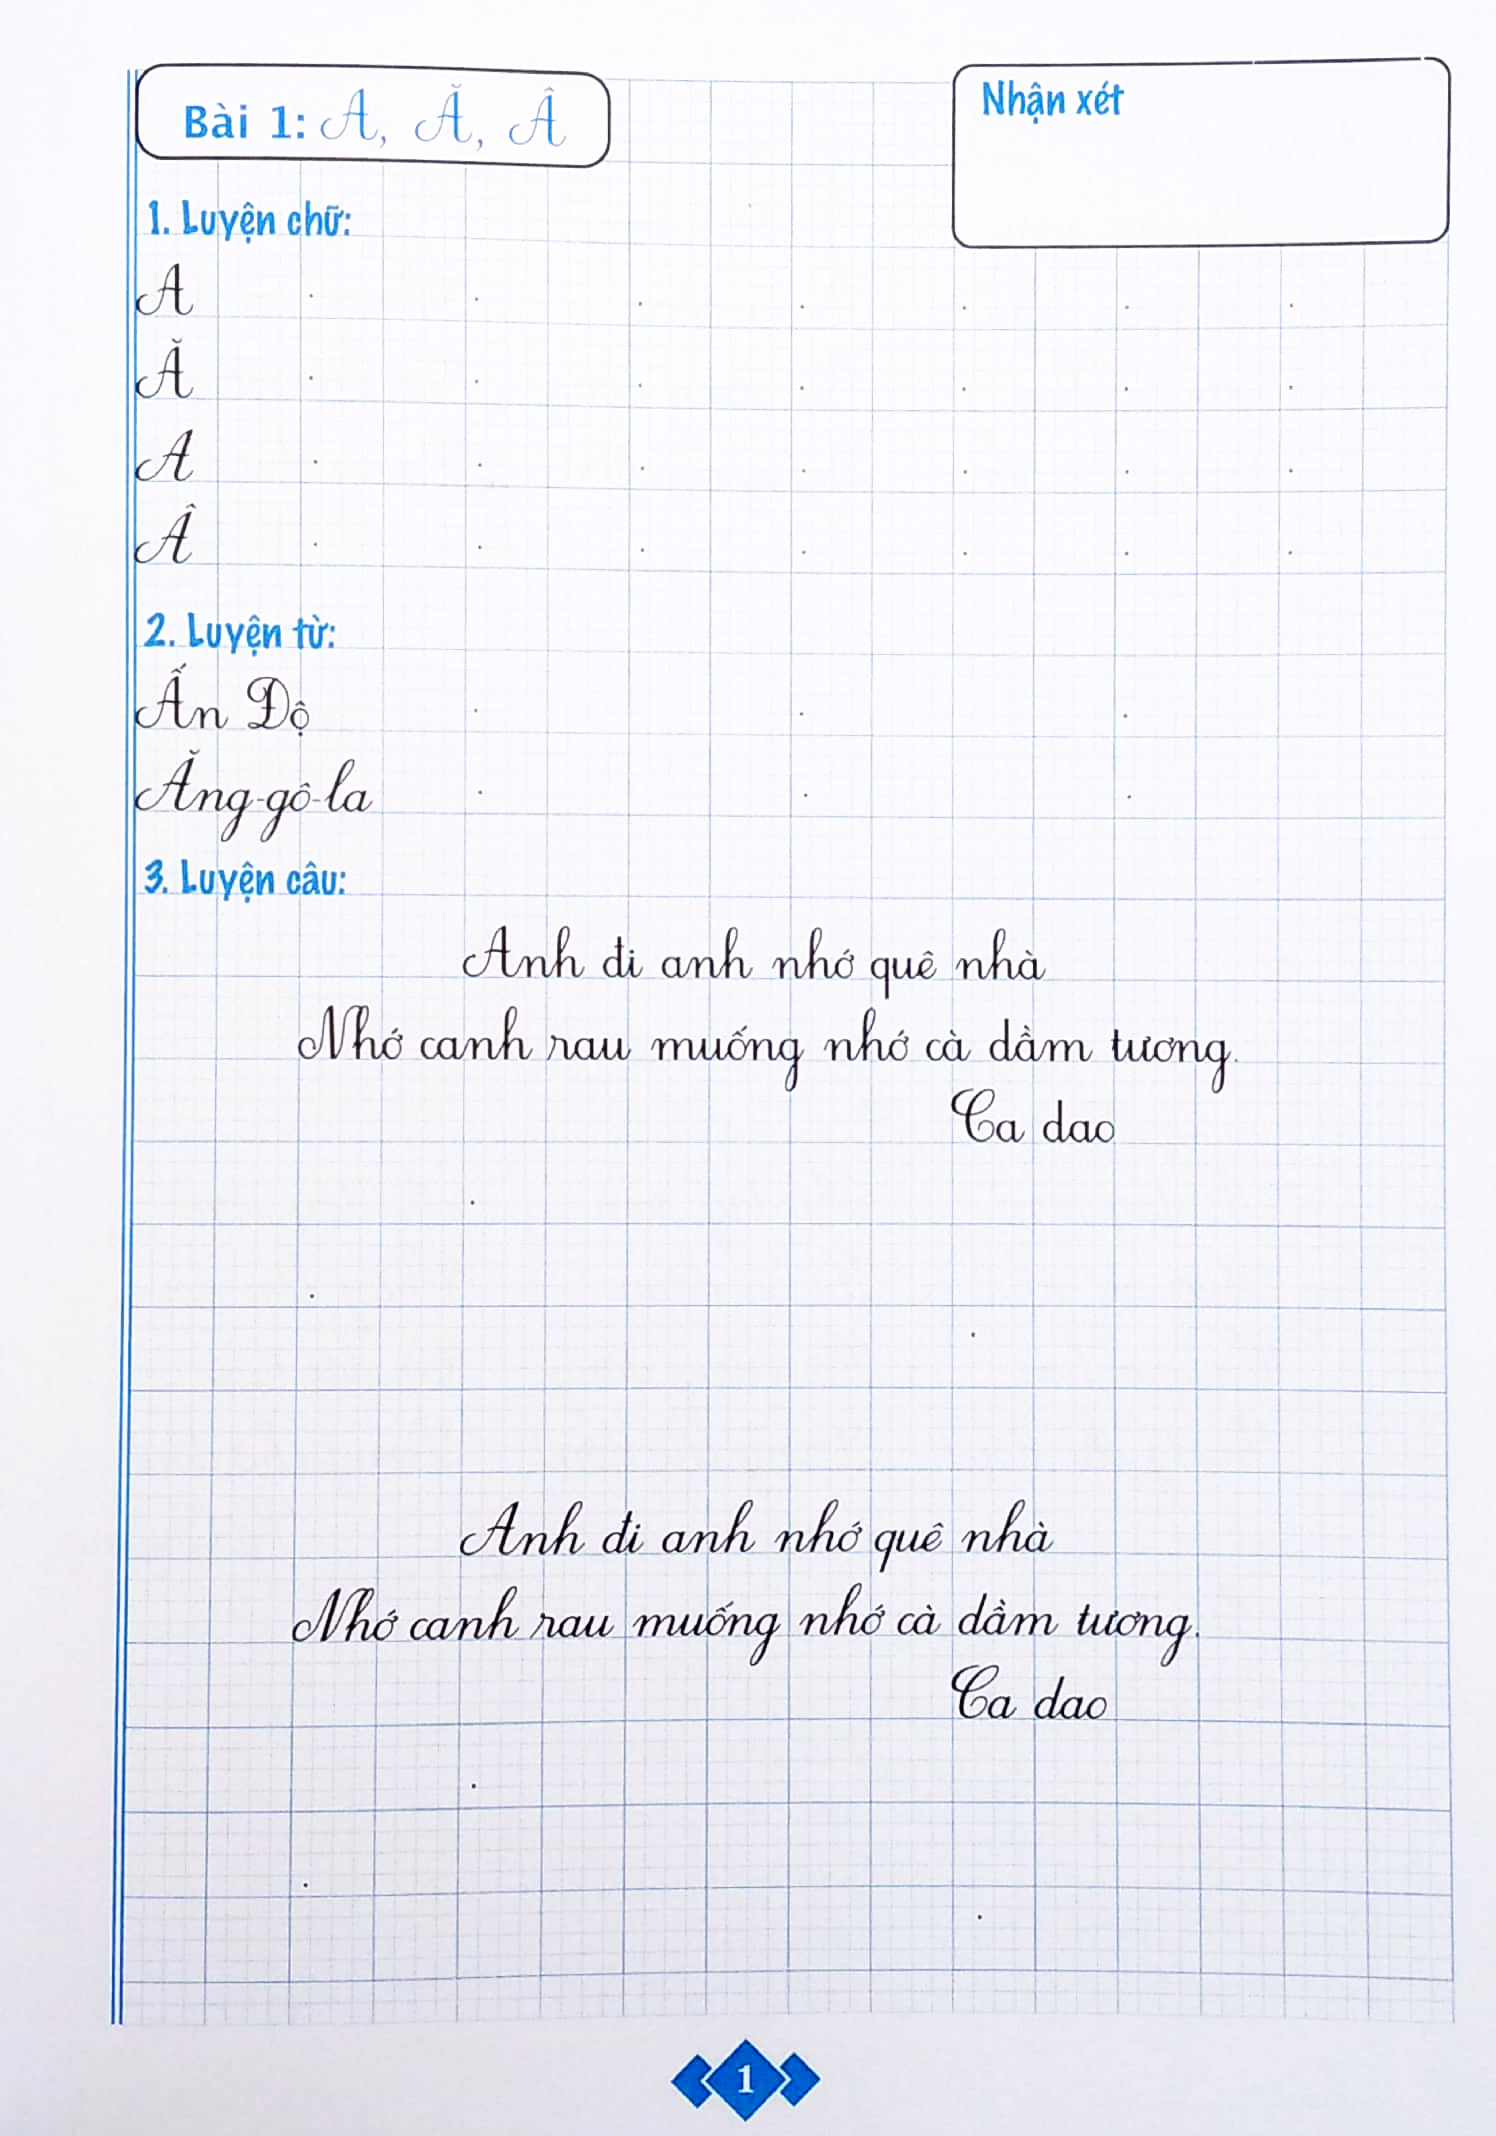 Bài 1: A, Ă, Â
Nhận xét
1. Luyện chữ:
A
Ă
A
Â
2. Luyện từ:
Ấn Độ
Ăng-gô-la
3. Luyện câu:
Anh đi anh nhớ quê nhà
Nhớ canh rau muống nhớ cà dầm tương.
Ca dao
Anh đi anh nhớ quê nhà
Nhớ canh rau muống nhớ cà dầm tương.
Ca dao
1